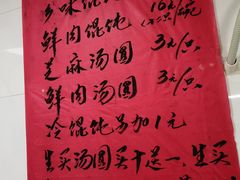 乡味馄饨 16元/碗
鲜肉馄饨
芝麻汤圆 3元/只
鲜肉汤圆 3元/只
冷馄饨另加1元
生买汤圆买十送一、生买